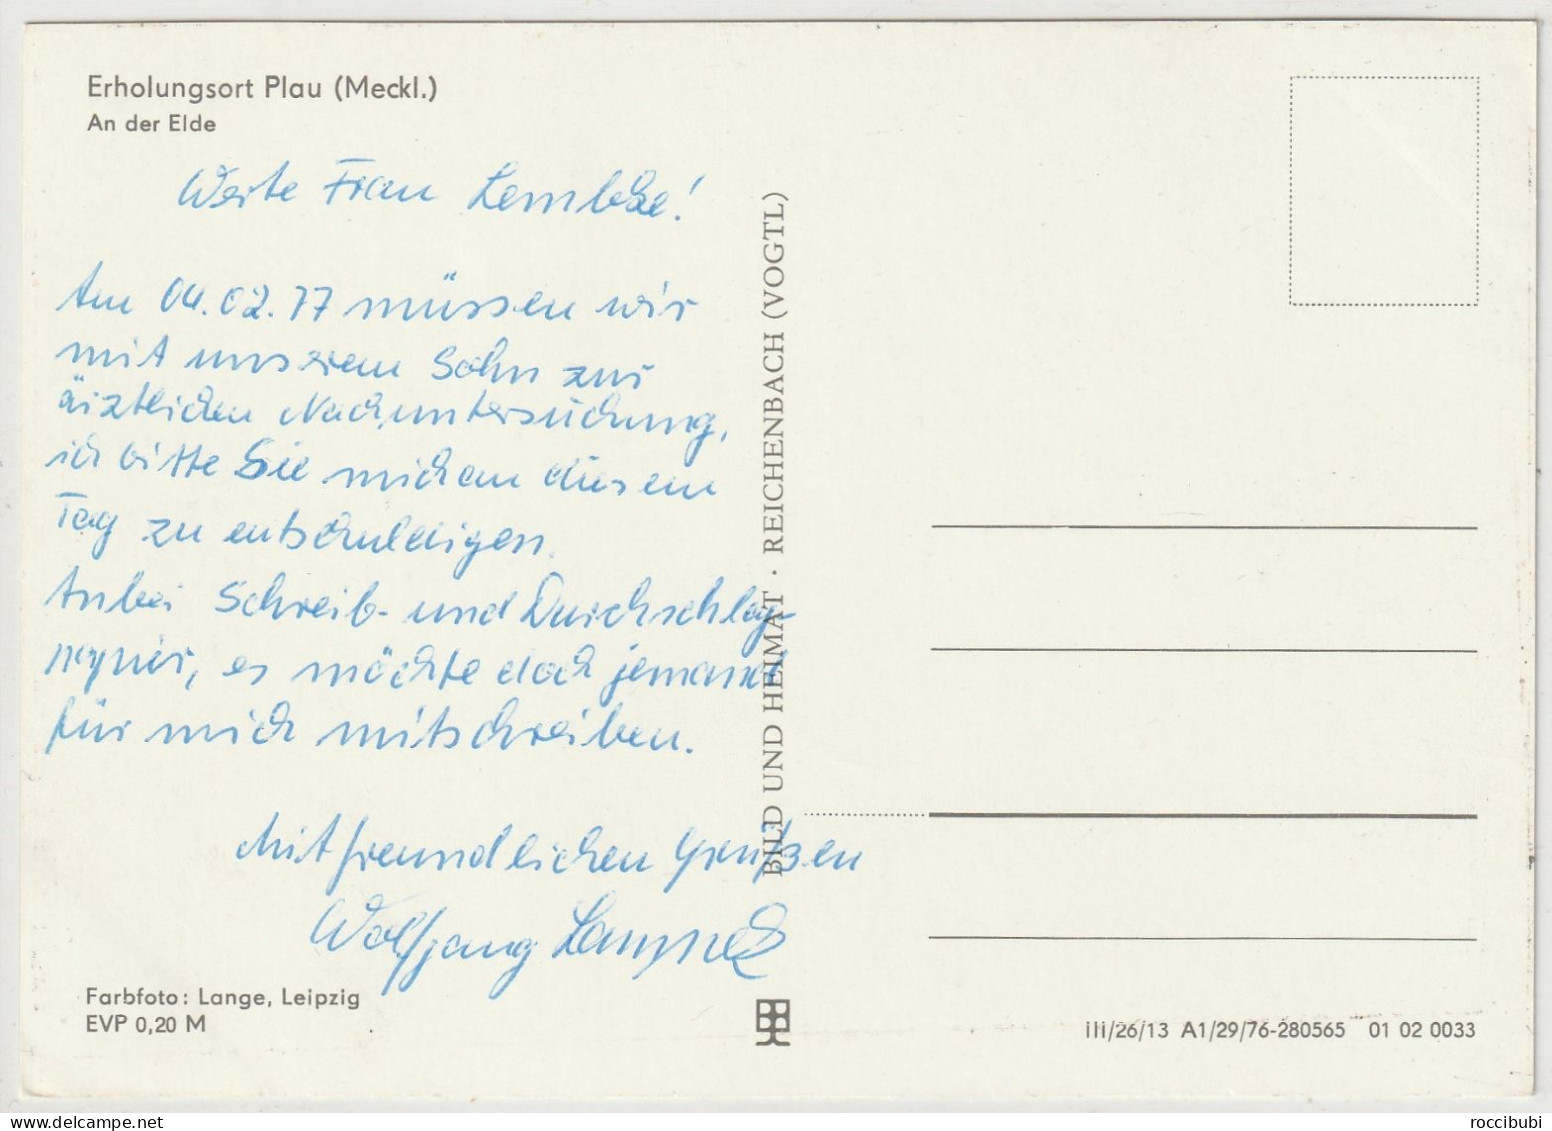 Erholungsort Plau (Meckl.)
An der Elde
Werte Frau Lembke!
Am 04.02.77 müssen wir
mit unserem Sohn zur
ärztlichen Nachuntersuchung,
ich bitte Sie mich an diesem
Tag zu entschuldigen.
Anbei Schreib- und Durchschlag-
papier, es möchte doch jemand
für mich mitschreiben.
Mit freundlichen Grüßen
Wolfgang
Farbfoto: Lange, Leipzig
EVP 0,20 M
BILD UND HEIMAT · REICHENBACH (VOGTL)
III/26/13 A1/29/76-280565 01 02 0033
roccibubi